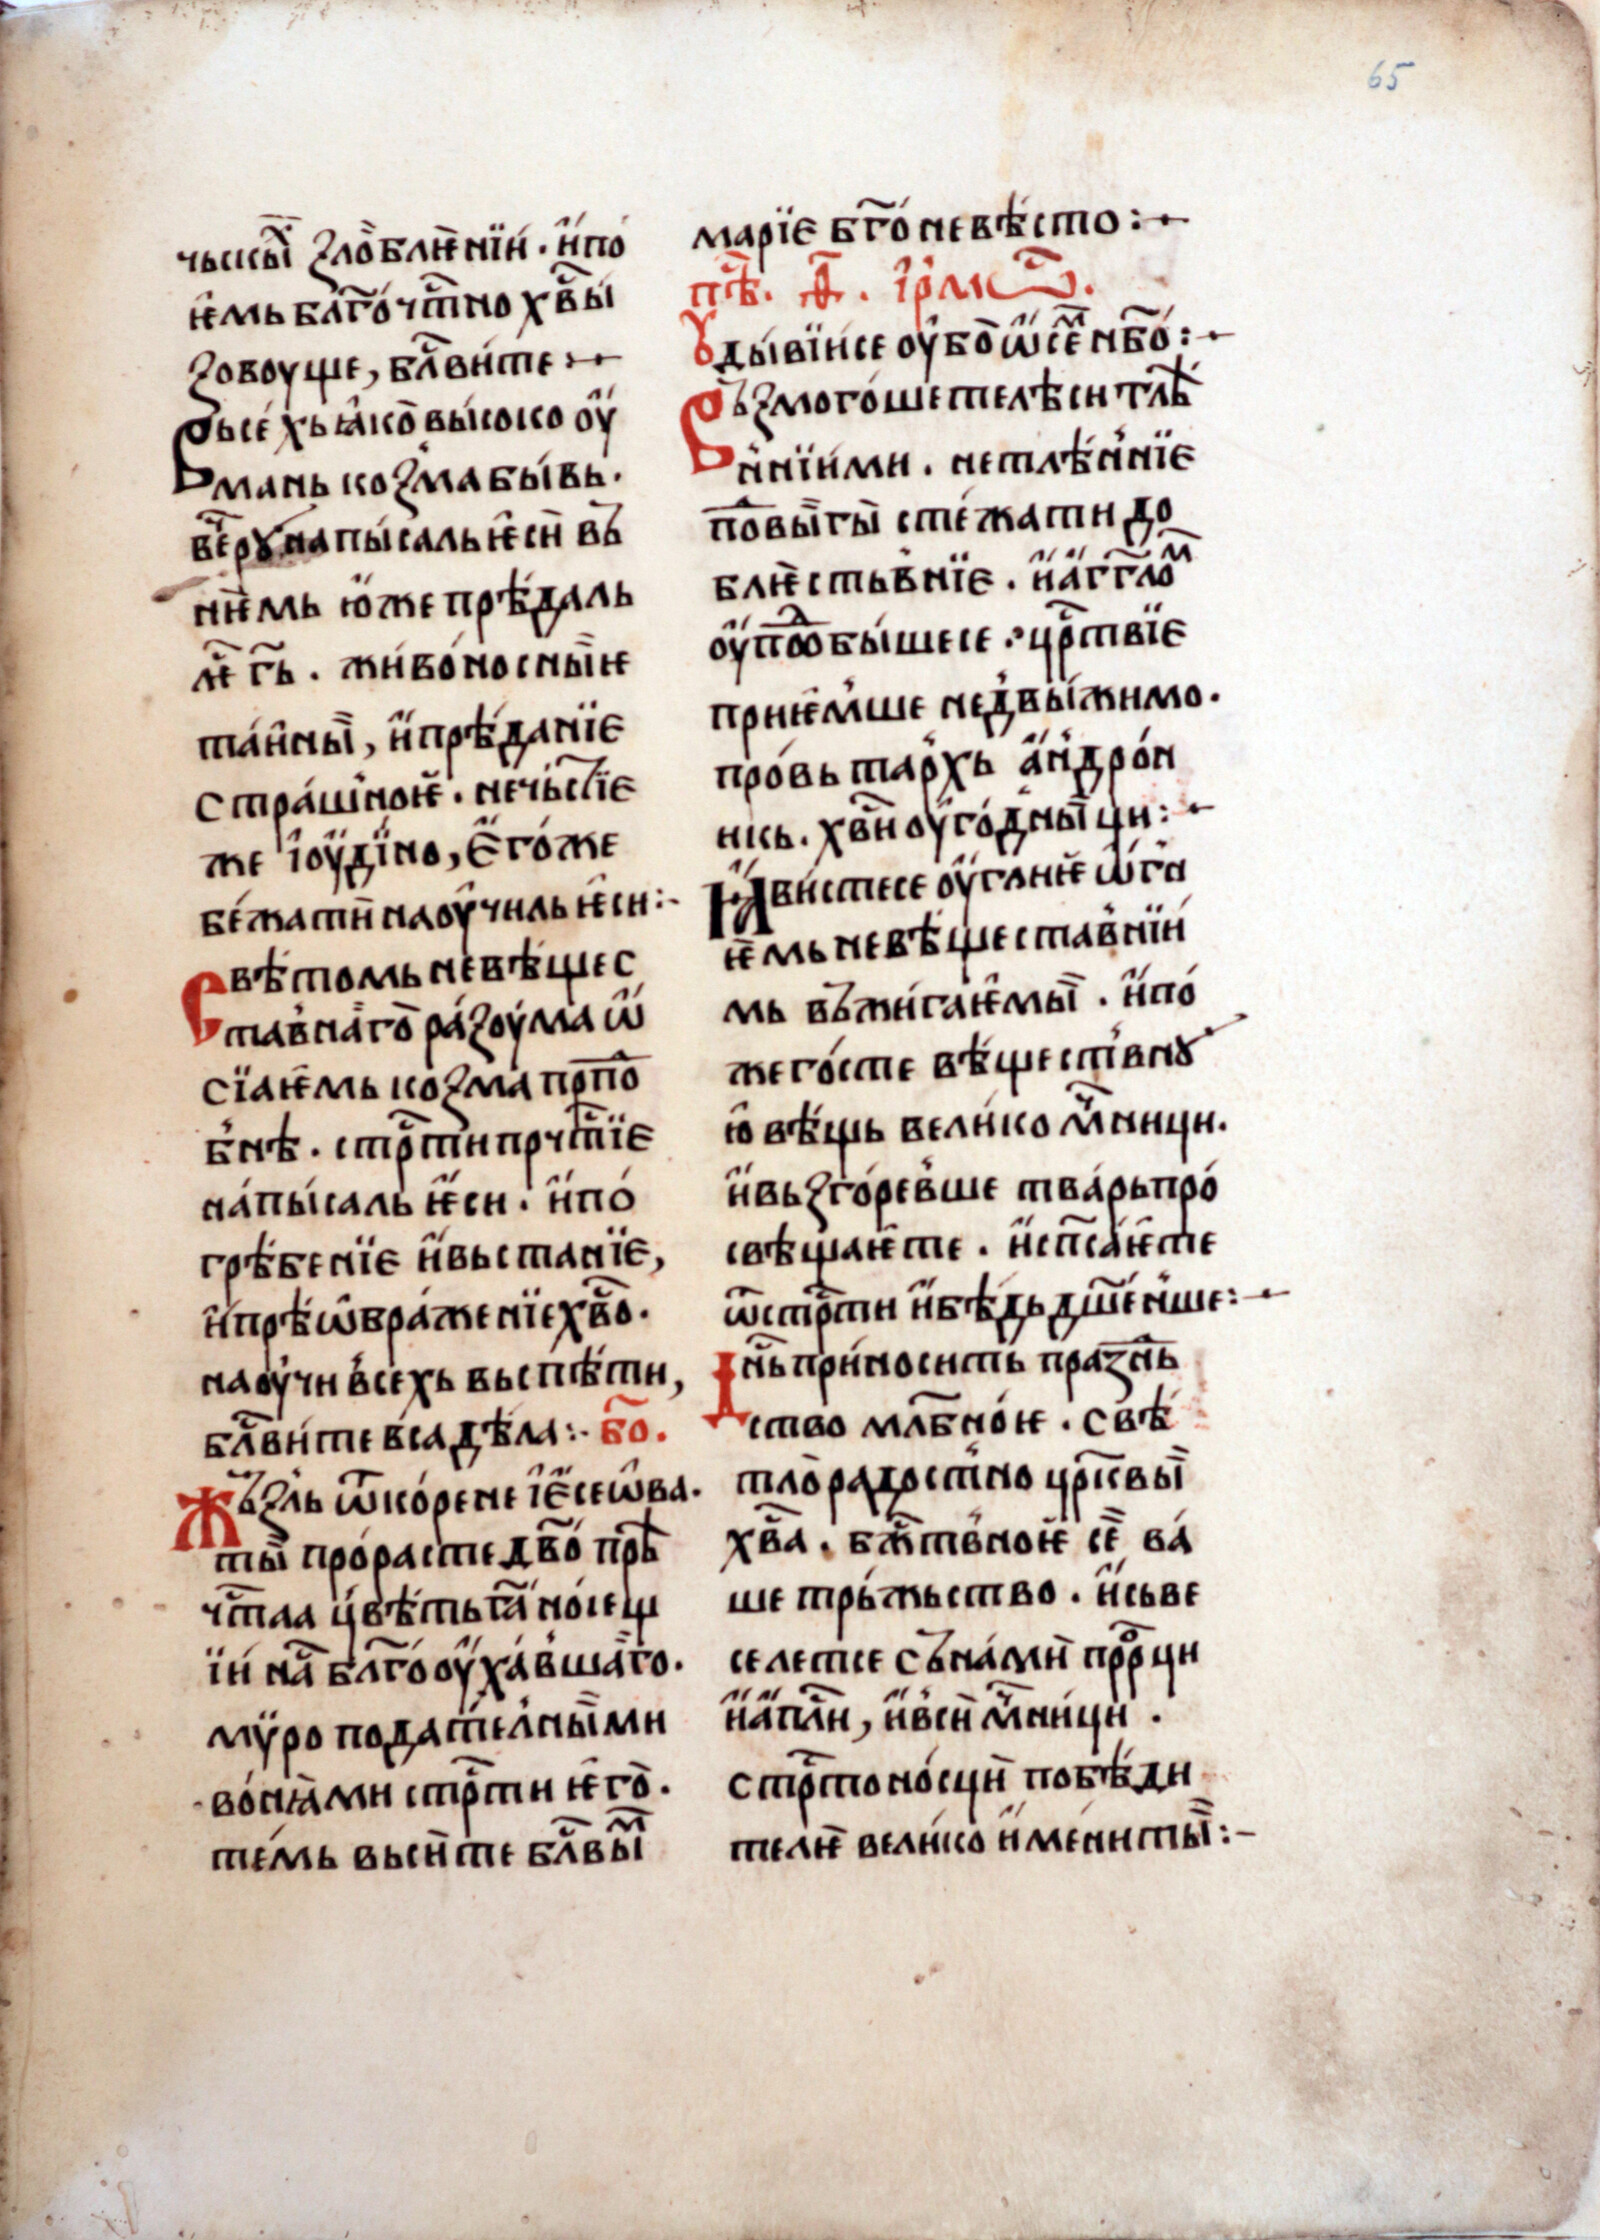 65
чьскы̏х ꙁло̀блѥ̀нїи́ · и҆̀по́
ѥ҆мь бл҃го́чт҇но хв҇ы́
ꙁовоуще, бл҇ви́те :~
Въсе́ хь ꙗ҆́ко̀ высоко ѹ҆̀
мань коꙁ̾ма бы́вь ·
ве҇рꙋ напы́саль ѥ҆сѝ въ̀
нѥ̀мь ю҆̀же прѣ́даль
ѥ҇ г҃ь · жи́во́носны̏ѥ
та́и҆ны̏, и҆̀прѣ́данїѥ
стра́ш̾ноѥ̀ · нечьст҇їѥ
же і҆ѹ́дїно, ѥ҆̀го́же
бе́жатѝ наѹ҆чиль ѥ҆си :~
Свѣ́томь невѣ́щес
тав̾на̏го̀ ра́ꙁоу́ма ѿ
сїаѥ҆мь коꙁма́ прⷣпо
б̾нѣ · стрⷭ҇ти прч҇тїѥ
на́пы́саль ѥ҆̀си · и҆̀по́
грѣ́бенїѥ и҆̀вьстанїѥ,
и҆̀прѣѡ҆бра́женїе хв҇о ·
наѹ҆́чи в̾се́хь вьспѣ́ти,
бл҇ви́те в̾са дѣ́ла :~ бо҇ ·
Жъꙁ̾ль ѿко́рене і҆ѥ̀сеѡ҆ва ·
ты̏ про́расте дв҃о́ прⷣѣ
чт҇аа цвѣ́ть та҇ но́сещ
їи́ на҇ бл҃го́ѹ҆ха́в̾ша̏го ·
мѵро пода́тел̾ны̏ми
во́нꙗ҆̀ми стрⷭ҇ти ѥ҆го̀ ·
те́мь вьсѝ те бл҇вы̏м
марїѥ бг҃о́невѣ́сто :~
пѣ҇ · ѳ҃ · і҆рмⷭ҇ ѿ ·
Ꙋды́вїи́се ѹ҆бо̀ ѡ҆се҇м нб҃о́ :~
Въꙁмого́ше телѣ́си тлѣ́
н̾нїи́ми · нетлѣ́н̾нїѥ
поⷣвы̏гы̏ сте́жати до
блѥ̀стьв̾нїѥ · и҆̀а҆̀гг҃ло́м
ѹ҆̀поⷣобы́шесе · црⷭ҇твїѥ
приѥ҆м̾ше нед̾вы́жимо ·
про́вь тар̾хь а҆̀н̾дро́н
икь · хв҇и ѹ҆̀го́д̾ны̏ци :~
Ꙗ҆̀ви́стесе ѹ҆̀глиѥ̀ ѡ҆̀гн̾
ѥ̀мь невѣ́щестав̾нїи́
мь въжи́гаѥ҆мы̏ · и҆̀по́
жего́сте вѣ́ществ̾нꙋ
ю҆ вѣ́щь вели́ко мч҇ници ·
и҆̀вьꙁго́рев̾ше тва́рь про́
свѣ́щаѥ҆те · и҆̀сп҇са́ѥ҆те
ѿстрⷭ҇ти и҆̀бѣ́дь дш҃е́н̾ше :~
Дн҇ь при́носить праꙁн҇ь
ство мл҃бно́ѥ · свѣ́
тло̀радост̾но црк҇вы̏
хв҇а · бж҇тв̾ноѥ̀ се҇ ва́
ше трь́жьство · и҆̀сьве
селетсе съна́мѝ прⷪ҇ци
и҆̀а҆̀пл҇и, и҆̀в̾сѝ мч҇ни́ци ·
стрⷭ҇тоно́сцѝ побѣ́ди
телѥ̀ вели́ко и҆̀мени́ты̏ :~